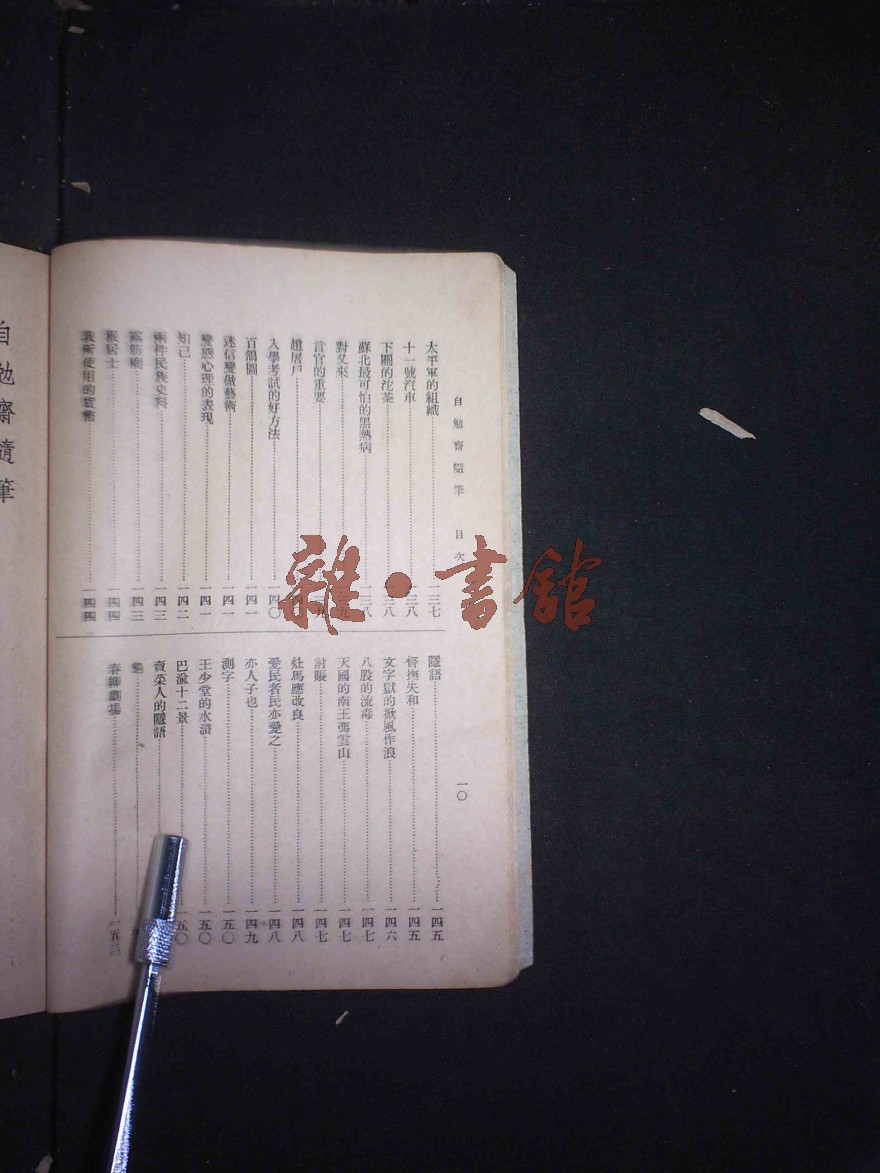 自勉齋隨筆 目次
一〇
太平軍的組織……一三七
十一號汽車……一三八
下關的沱茶……一三八
蘇北最可怕的黑熱病……一三八
對又來……三九
言官的重要
趙屠戶
入學考試的好方法……一四〇
百鴿圖……一四一
迷信變做藝術……一四一
變態心理的表現……一四一
知己……一四二
兩件民族史料……一四三
露筋廟……一四三
居士……一四四
我所使用的貨幣……一四四
隱語……一四五
督撫失和……一四五
文字獄的掀風作浪……一四六
八股的流毒……一四七
天國的南王馮雲山……一四七
討賬……一四七
灶馬應改良……一四八
愛民者民亦愛之……一四八
亦人子也……一四九
測字……一五〇
王少堂的水滸……一五〇
巴渝十二景……一五〇
賣菜人的隱語
春柳劇場……一五
自勉齋隨筆
雜·書館